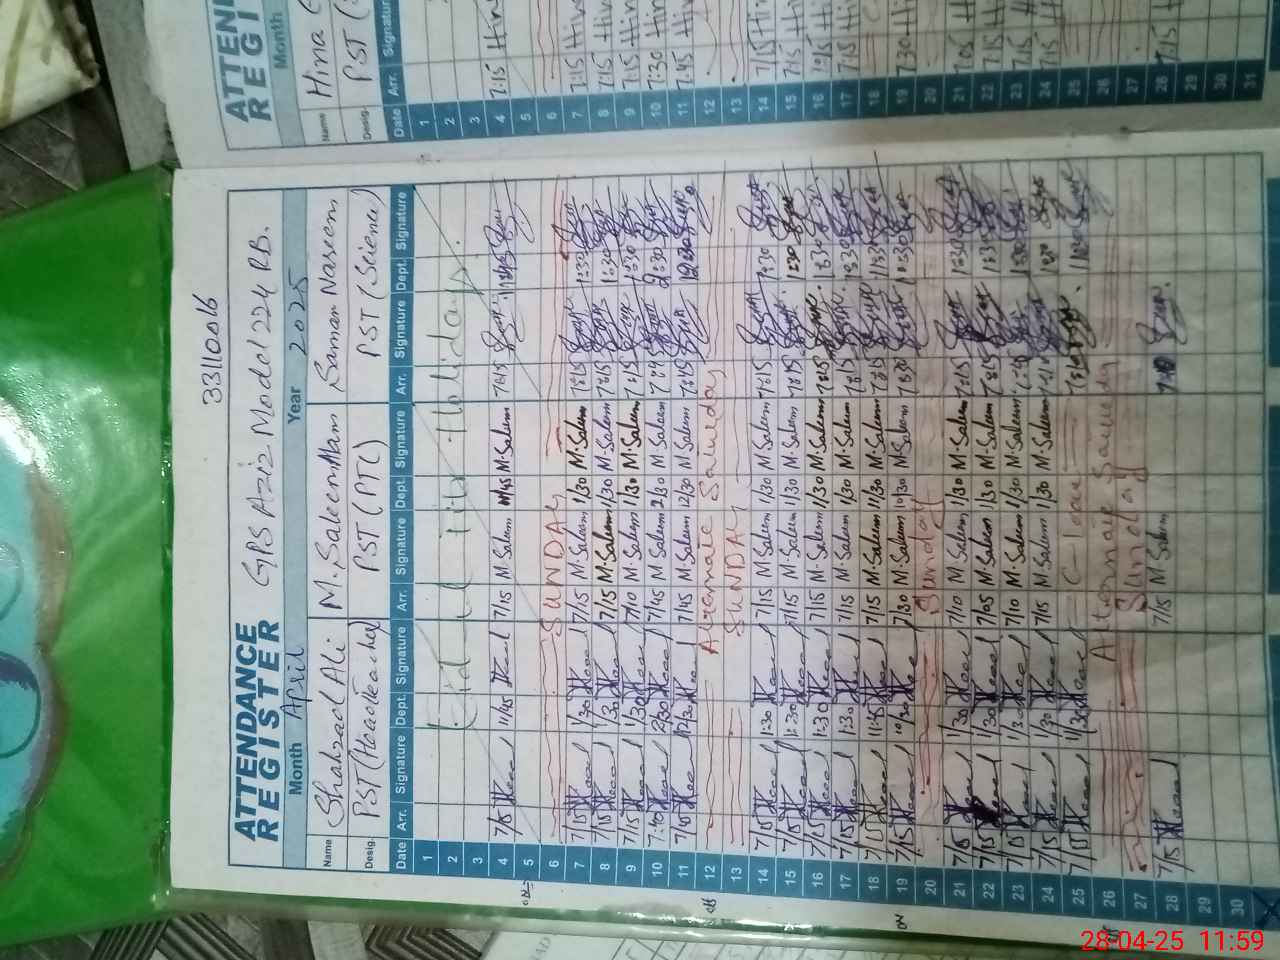 33110016
ATTENDANCE REGISTER
GPS Aziz Model 224 R.B.
Month April Year 2025
Name Shahzad Ali M. Saleem Saman Naseem
Desig. PST (HeadTeacher) PST (PTC) PST (Science)
Date Arr. Signature Dept. Signature Arr. Signature Dept. Signature Arr. Signature Dept. Signature
1
2 Eid-ul-Fitr Holiday.
3
4 7/15 11/45 7/15 M.Saleem 11/45 M.Saleem 7:15
5
6 SUNDAY
7 7/15 1/30 7/15 M.Saleem 1/30 M.Saleem 7:15 1:30
8 7/15 1/30 7/15 M.Saleem 1/30 M.Saleem 7:15 1:30
9 7/15 1/30 7/10 M.Saleem 1/30 M.Saleem 7:15 1:30
10 7:40 2/30 7/45 M.Saleem 2/30 M.Saleem 7:45 2:30
11 7/15 12/30 7/45 M.Saleem 12/30 M.Saleem 7:15 12:30
12 Alternate Saturday
13 SUNDAY
14 7/15 1:30 7/15 M.Saleem 1/30 M.Saleem 7:15 1:30
15 7/15 1:30 7/15 M.Saleem 1/30 M.Saleem 7:15 1:30
16 7/15 1:30 7/15 M.Saleem 1/30 M.Saleem 7:15 1:30
17 7/15 1:30 7/15 M.Saleem 1/30 M.Saleem 7:15 1:30
18 7/15 7/15 M.Saleem 11/30 M.Saleem 7:15 11:30
19 7/15 10/30 7/30 M.Saleem 10/30 M.Saleem 7:30 10:30
20 Sunday
21 7/15 1/30 7/10 M.Saleem 1/30 M.Saleem 7:15 1:30
22 7/15 1/30 7/05 M.Saleem 1/30 M.Saleem 7:15 1:30
23 7/15 1/30 7/10 M.Saleem 1/30 M.Saleem 1:30
24 7/15 1/30 7/15 M.Saleem 1/30 M.Saleem 1:30
25 7/15 11/30 C-leave 11:30
26 Alternate Saturday
27 Sunday
28 7/15 7/15 M.Saleem 7:10
29
30
ATTEN
REGI
Month
Name Hina
Desig. PST
Date Arr. Signature
1
2
3
4 7:15 Hina
5
6
7 7:15 Hin
8 7:15 Hin
9 7:15 Hin
10 7:30 Hin
11 7:45 Hin
12
13
14 7/15 Hin
15 7:15 Hi
16 7:15 Hi
17 7:15 Hi
18
19 7:30 Hi
20
21 7:05 H
22 7:15 H
23 7:15 H
24 7:15 H
25
26
27
28 7:15 H
29
30
31
28-04-25 11:59